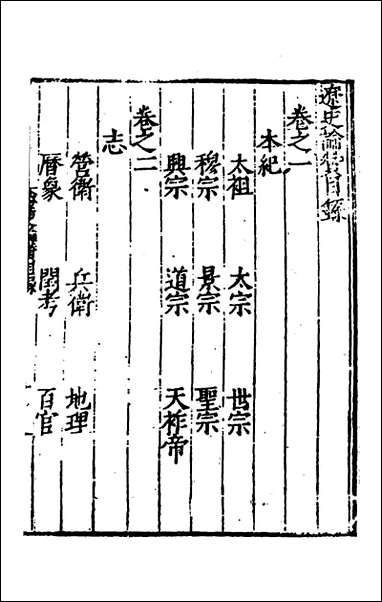 遼史論贊目錄
卷之一
本紀
太祖 太宗 世宗
穆宗 景宗 聖宗
興宗 道宗 天祚帝
卷之二
志
營衛 兵衛 地理
曆象 閏考 百官